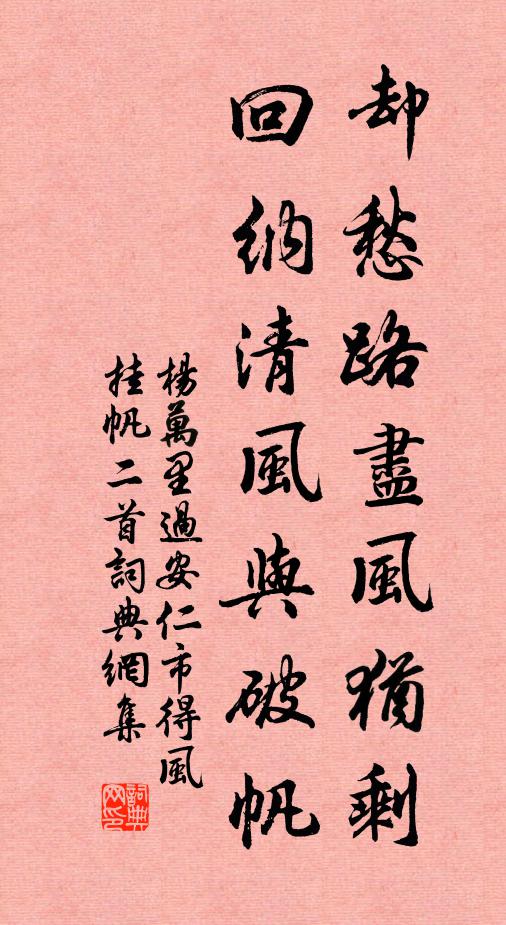 却愁路盡風猶剩
回納清風與破帆
楊萬里過安仁市得風
挂帆二首詞典網集
詞典
网印